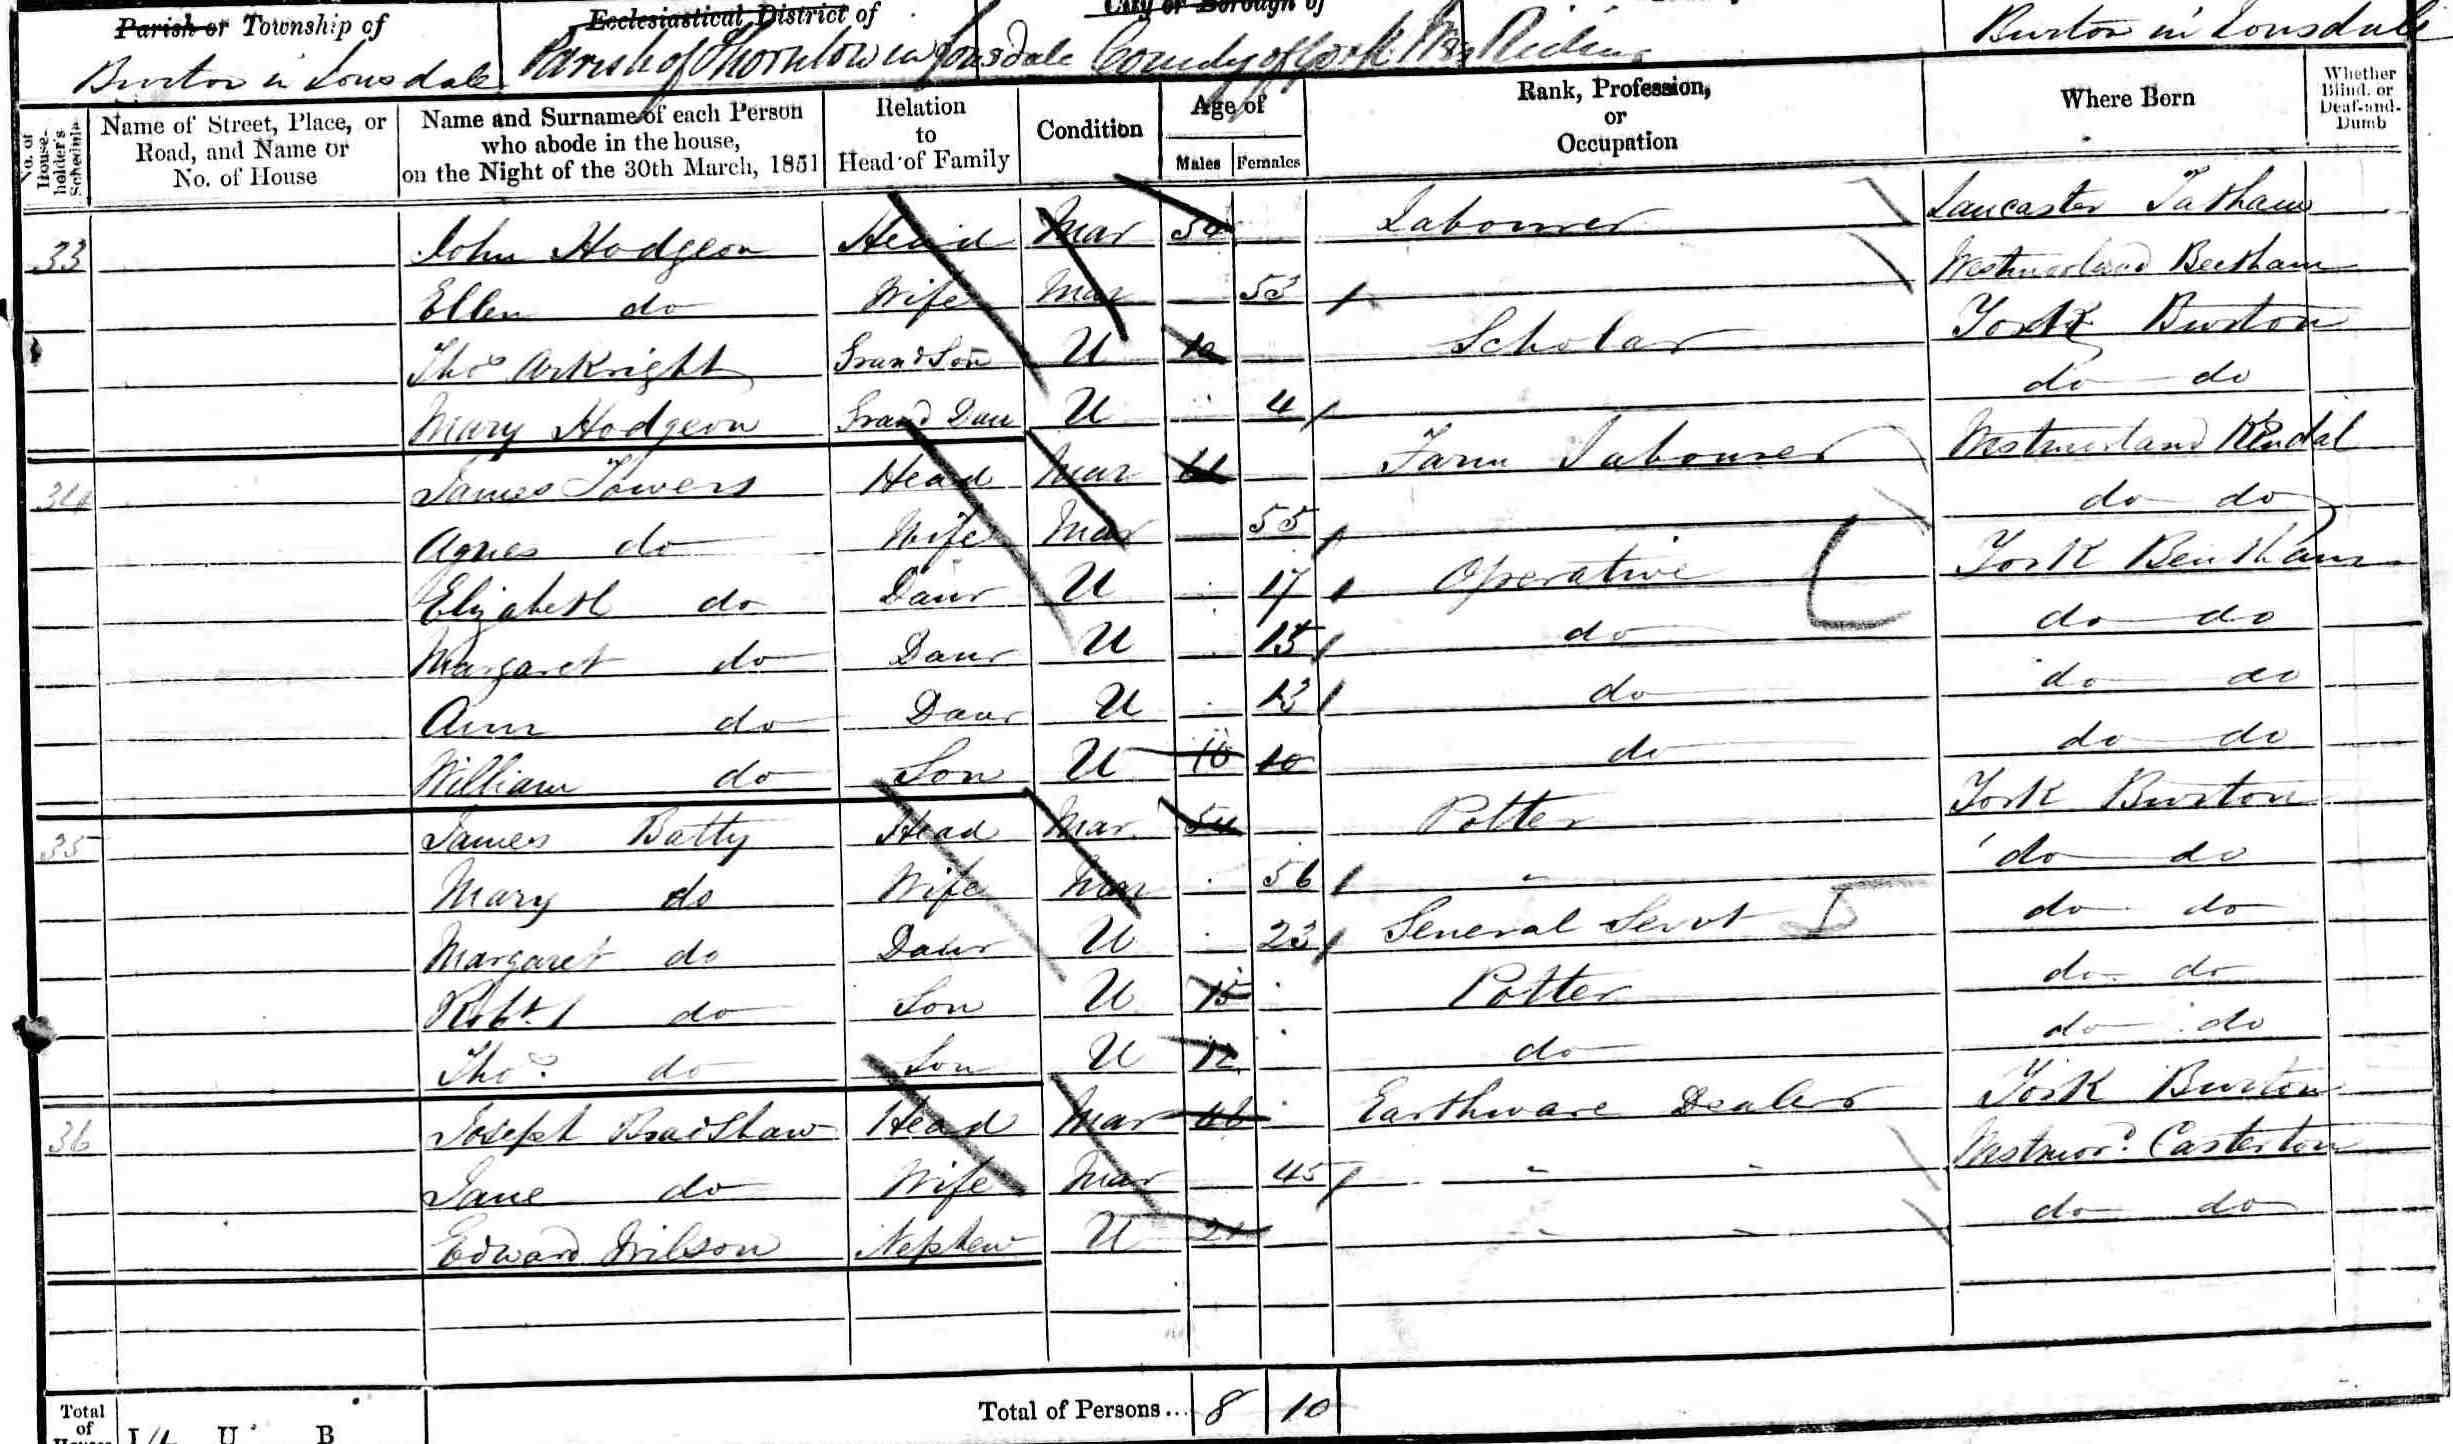 Parish or Township of
Ecclesiastical District of
City or Borough of
Burton in Lonsdale
Parish of Thornton in Lonsdale County of York West Riding
Burton in Lonsdale
No. of House-holder's Schedule
Name of Street, Place, or Road, and Name or No. of House
Name and Surname of each Person who abode in the house, on the Night of the 30th March, 1851
Relation to Head of Family
Condition
Age of
Males Females
Rank, Profession, or Occupation
Where Born
Whether Blind, or Deaf-and-Dumb
33 John Hodgson Head Mar 50 Labourer Lancaster Tatham
Ellen do Wife Mar 53 Westmorland Beetham
Thos Arkright Grand Son U 10 Scholar York Burton
Mary Hodgson Grand Daur U 4 do do
34 James Towers Head Mar Farm Labourer Westmorland Kendal
Agnes do Wife Mar 55 do do
Elizabeth do Daur U 17 Operative York Bentham
Margaret do Daur U 15 do do do
Ann do Daur U 13 do do do
William do Son U 10 10 do do do
35 James Batty Head Mar 54 Potter York Burton
Mary do Wife Mar 56 " do do
Margaret do Daur U 23 General Servt do do
Robt do Son U 15 Potter do do
Thos do Son U 12 do do do
36 Joseph Bradshaw Head Mar 46 Earthware Dealer York Burton
Jane do Wife Mar 45 " " Westmord Casterton
Edward Wilson Nephew U 21 " " do do
Total of Persons... 8 10
Total of Houses
I 4 U B